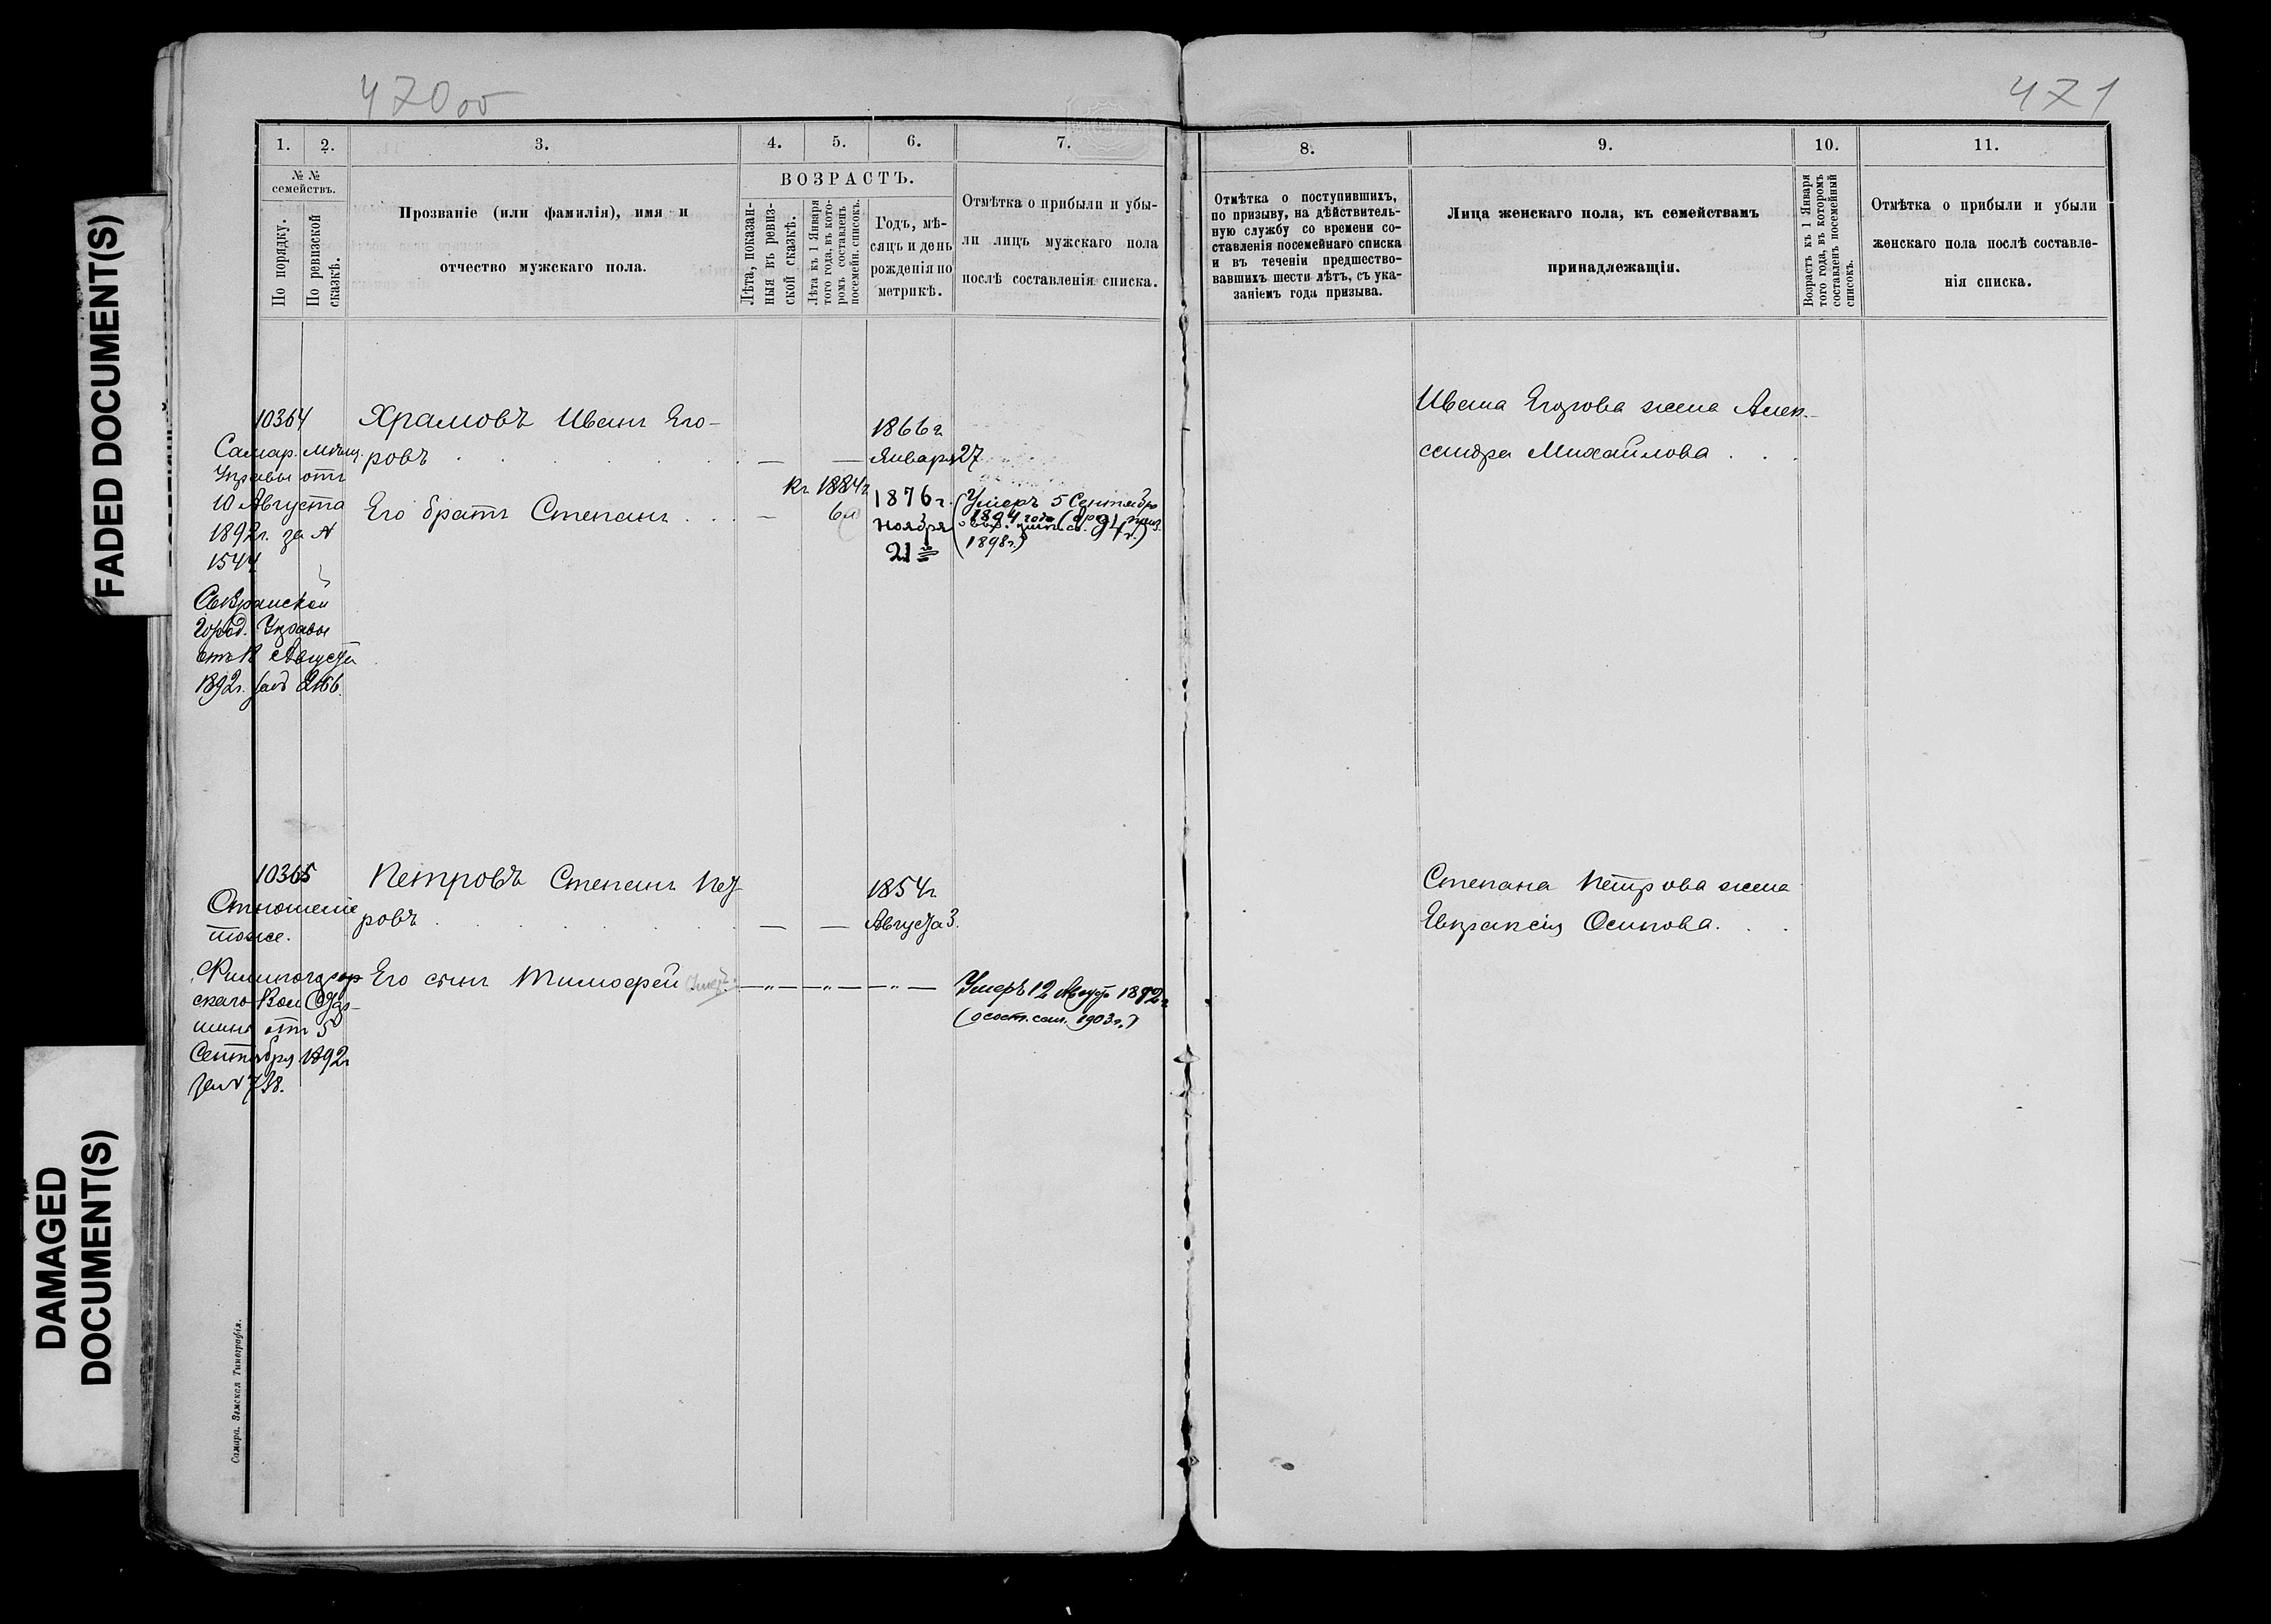 470 об
471
FADED DOCUMENT(S)
DAMAGED
DOCUMENT(S)
1.
2.
3.
4.
5.
6.
7.
№ №
семействъ.
По порядку.
По ревизской
сказкѣ.
Прозваніе (или фамилія), имя и
отчество мужскаго пола.
ВОЗРАСТЪ.
Лѣта, показан-
ныя въ ревиз-
ской сказкѣ.
Лѣта къ 1 Января
того года, въ кото-
ромъ составленъ
посемейн. списокъ.
Годъ, мѣ-
сяцъ и день
рожденія по
метрикѣ.
Отмѣтка о прибыли и убы-
ли лицъ мужскаго пола
послѣ составленія списка.
10364
Самар. Мѣщ.
Управы отъ
10 Августа
1892г. за №
1544
Сызранской
Город. Управы
Августа
1892г. за №
Храмовъ Иванъ Его-
ровъ
1866г.
Января 27
Его братъ Степанъ
Къ 1884г.
1876г.
Ноября
21
Умеръ 5 Сентября
1894 года
1898г.)
10365
Отношеніе
тоже.
отъ 5
Сентября 1892г.
за №
Петровъ Степанъ Пет-
ровъ
1854г.
Августа 3.
Его сынъ Тимофей
Умеръ 12 Август 1892г.
1903г.)
Самара. Земская Типографія.
8.
9.
10.
11.
Отмѣтка о поступившихъ,
по призыву, на дѣйствитель-
ную службу со времени со-
ставленія посемейнаго списка
и въ теченіи предшество-
вавшихъ шести лѣтъ, съ ука-
заніемъ года призыва.
Лица женскаго пола, къ семействамъ
принадлежащія.
Возрастъ къ 1 Января
того года, въ которомъ
составленъ посемейный
списокъ.
Отмѣтка о прибыли и убыли
женскаго пола послѣ составле-
нія списка.
Ивана Егорова жена Алек-
сандра Михайлова
Степана Петрова жена
Евпраксія Осипова.